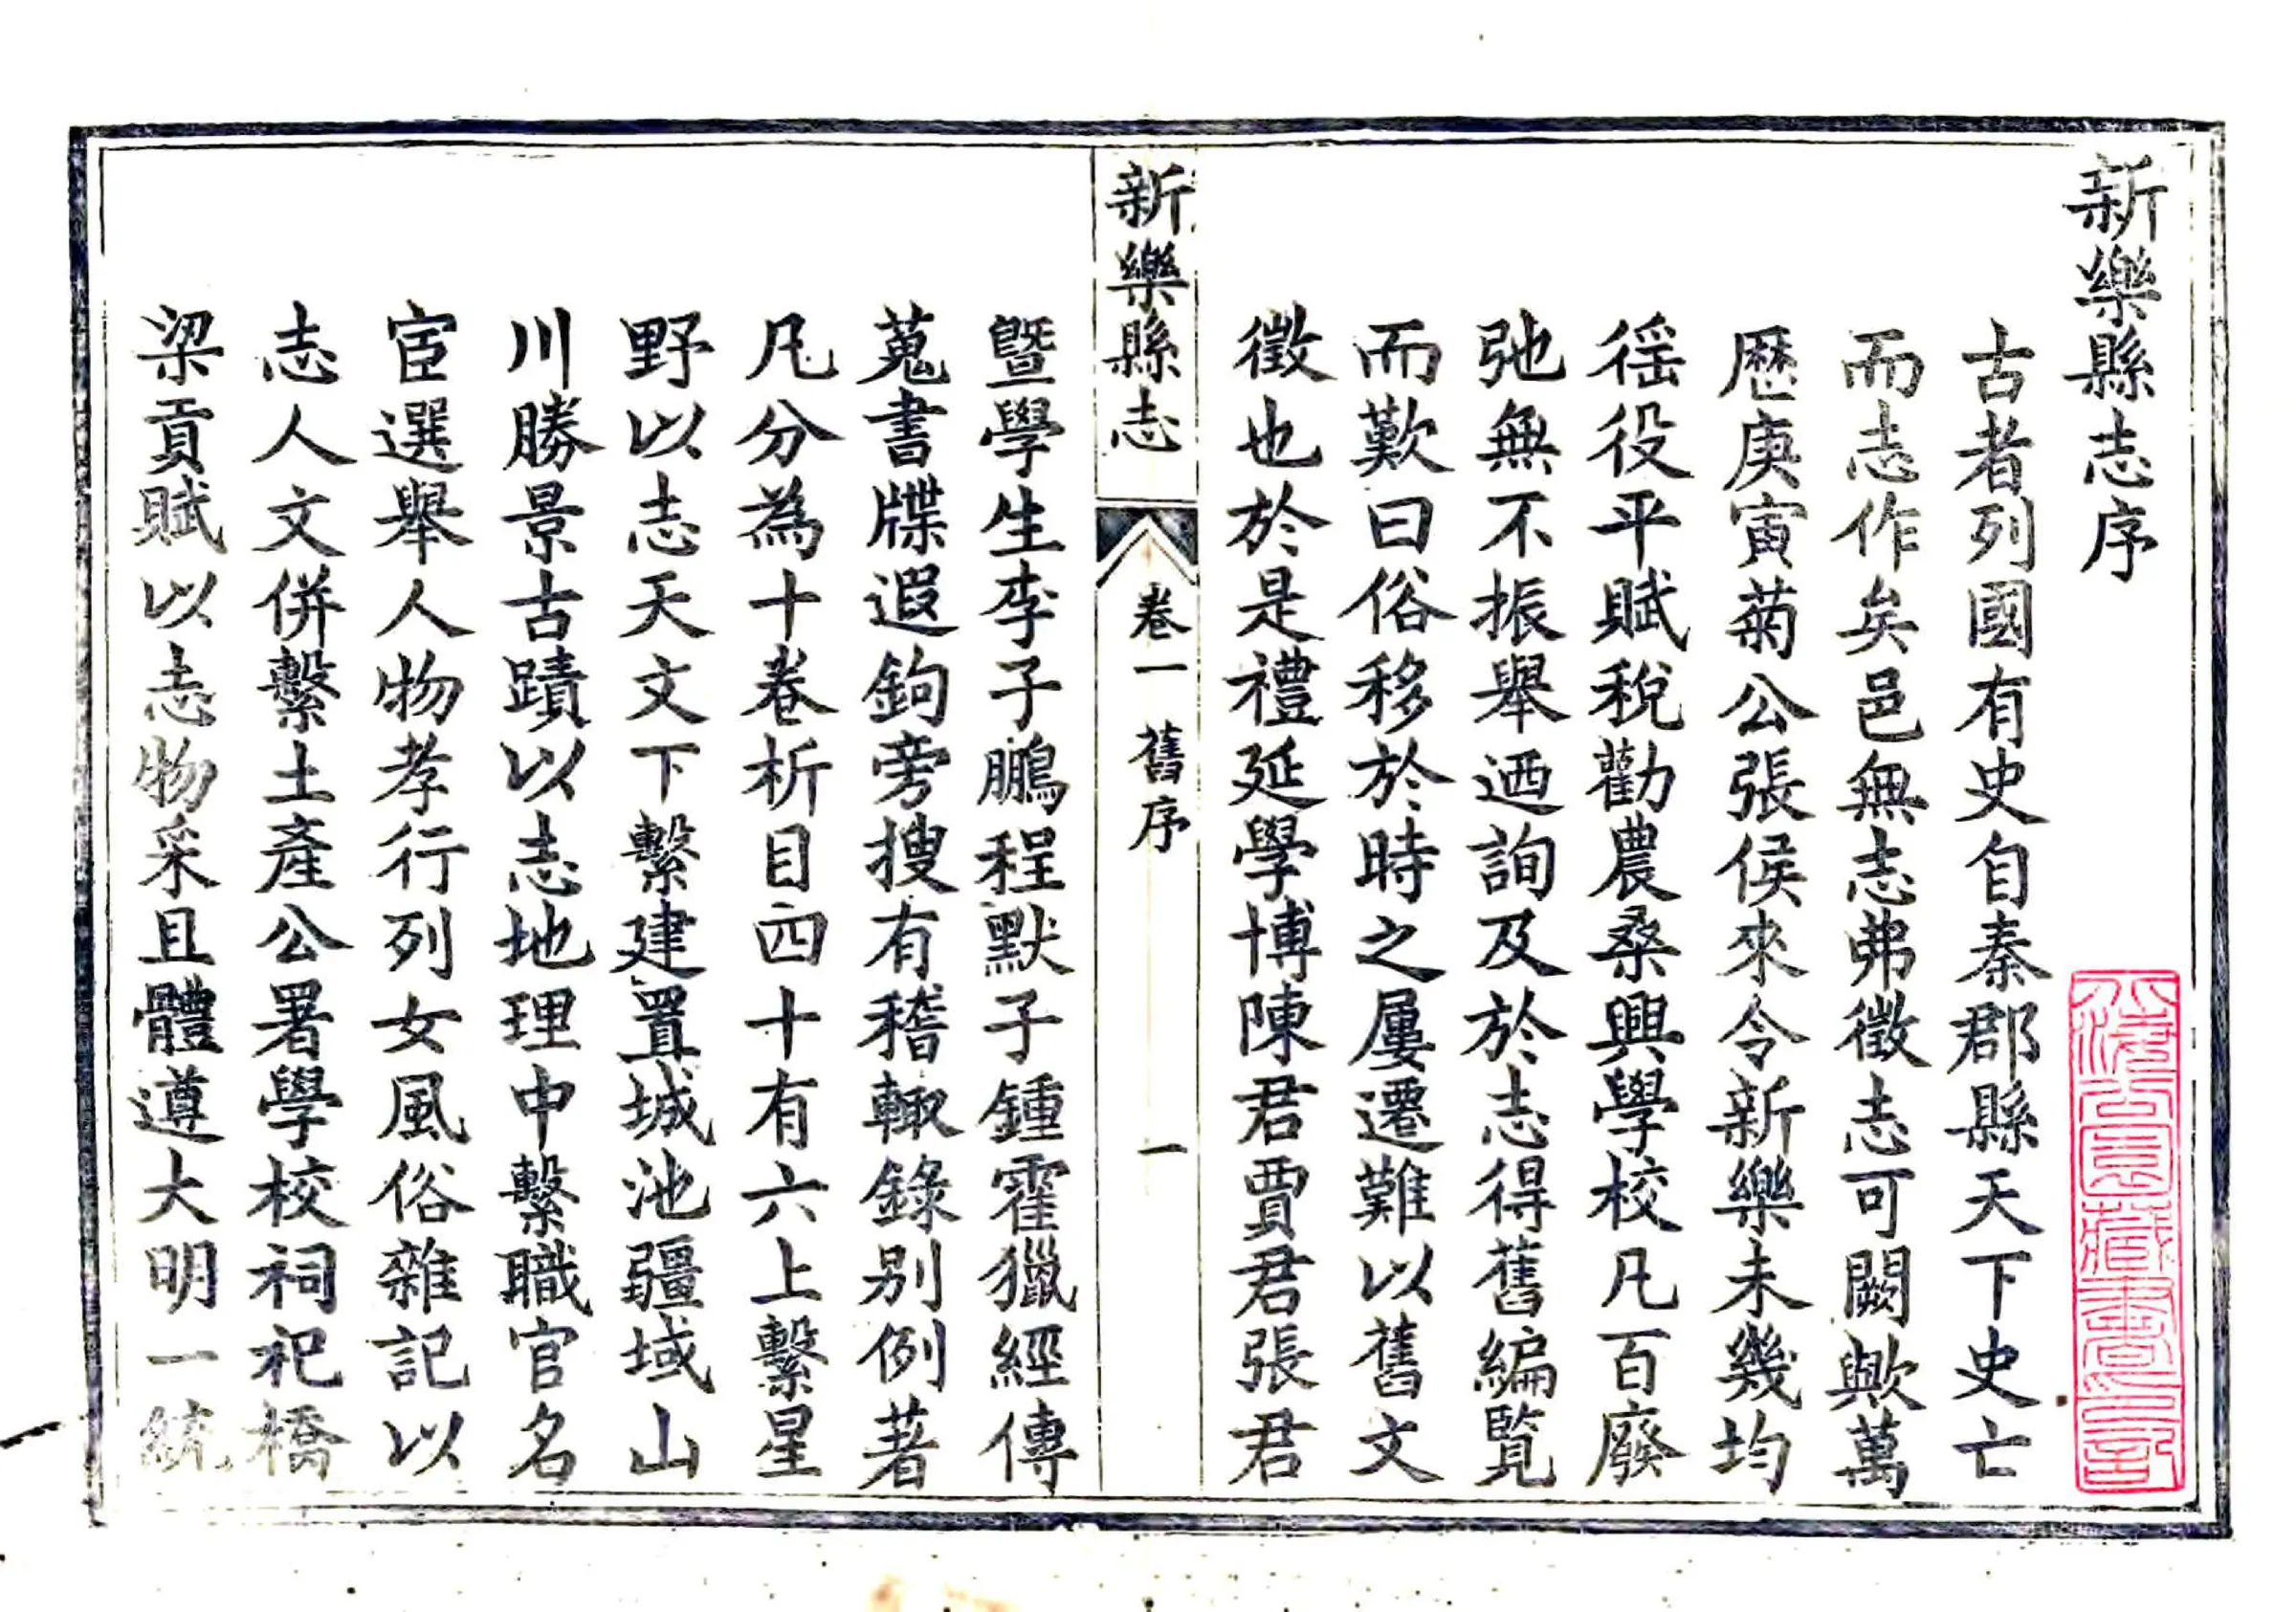 新樂縣志序
古者列國有史自秦郡縣天下史亡
而志作矣邑無志弗徵志可闕歟萬
歷庚寅菊公張侯來令新樂未幾均
徭役平賦稅勸農桑興學校凡百廢
弛無不振舉迺詢及於志得舊編覧
而歎曰俗移於時之屢遷難以舊文
徵也於是禮延學博陳君賈君張君
新樂縣志
卷一 舊序
一
曁學生李子鵬程默子鍾霍獵經傳
蒐書牒遐鉤旁搜有稽輙錄别例著
凡分為十卷析目四十有六上繫星
野以志天文下繫建置城池疆域山
川勝景古蹟以志地理中繫職官名
宦選舉人物孝行列女風俗雜記以
志人文併繫土產公署學校祠祀橋
梁貢賦以志物采且體遵大明一統